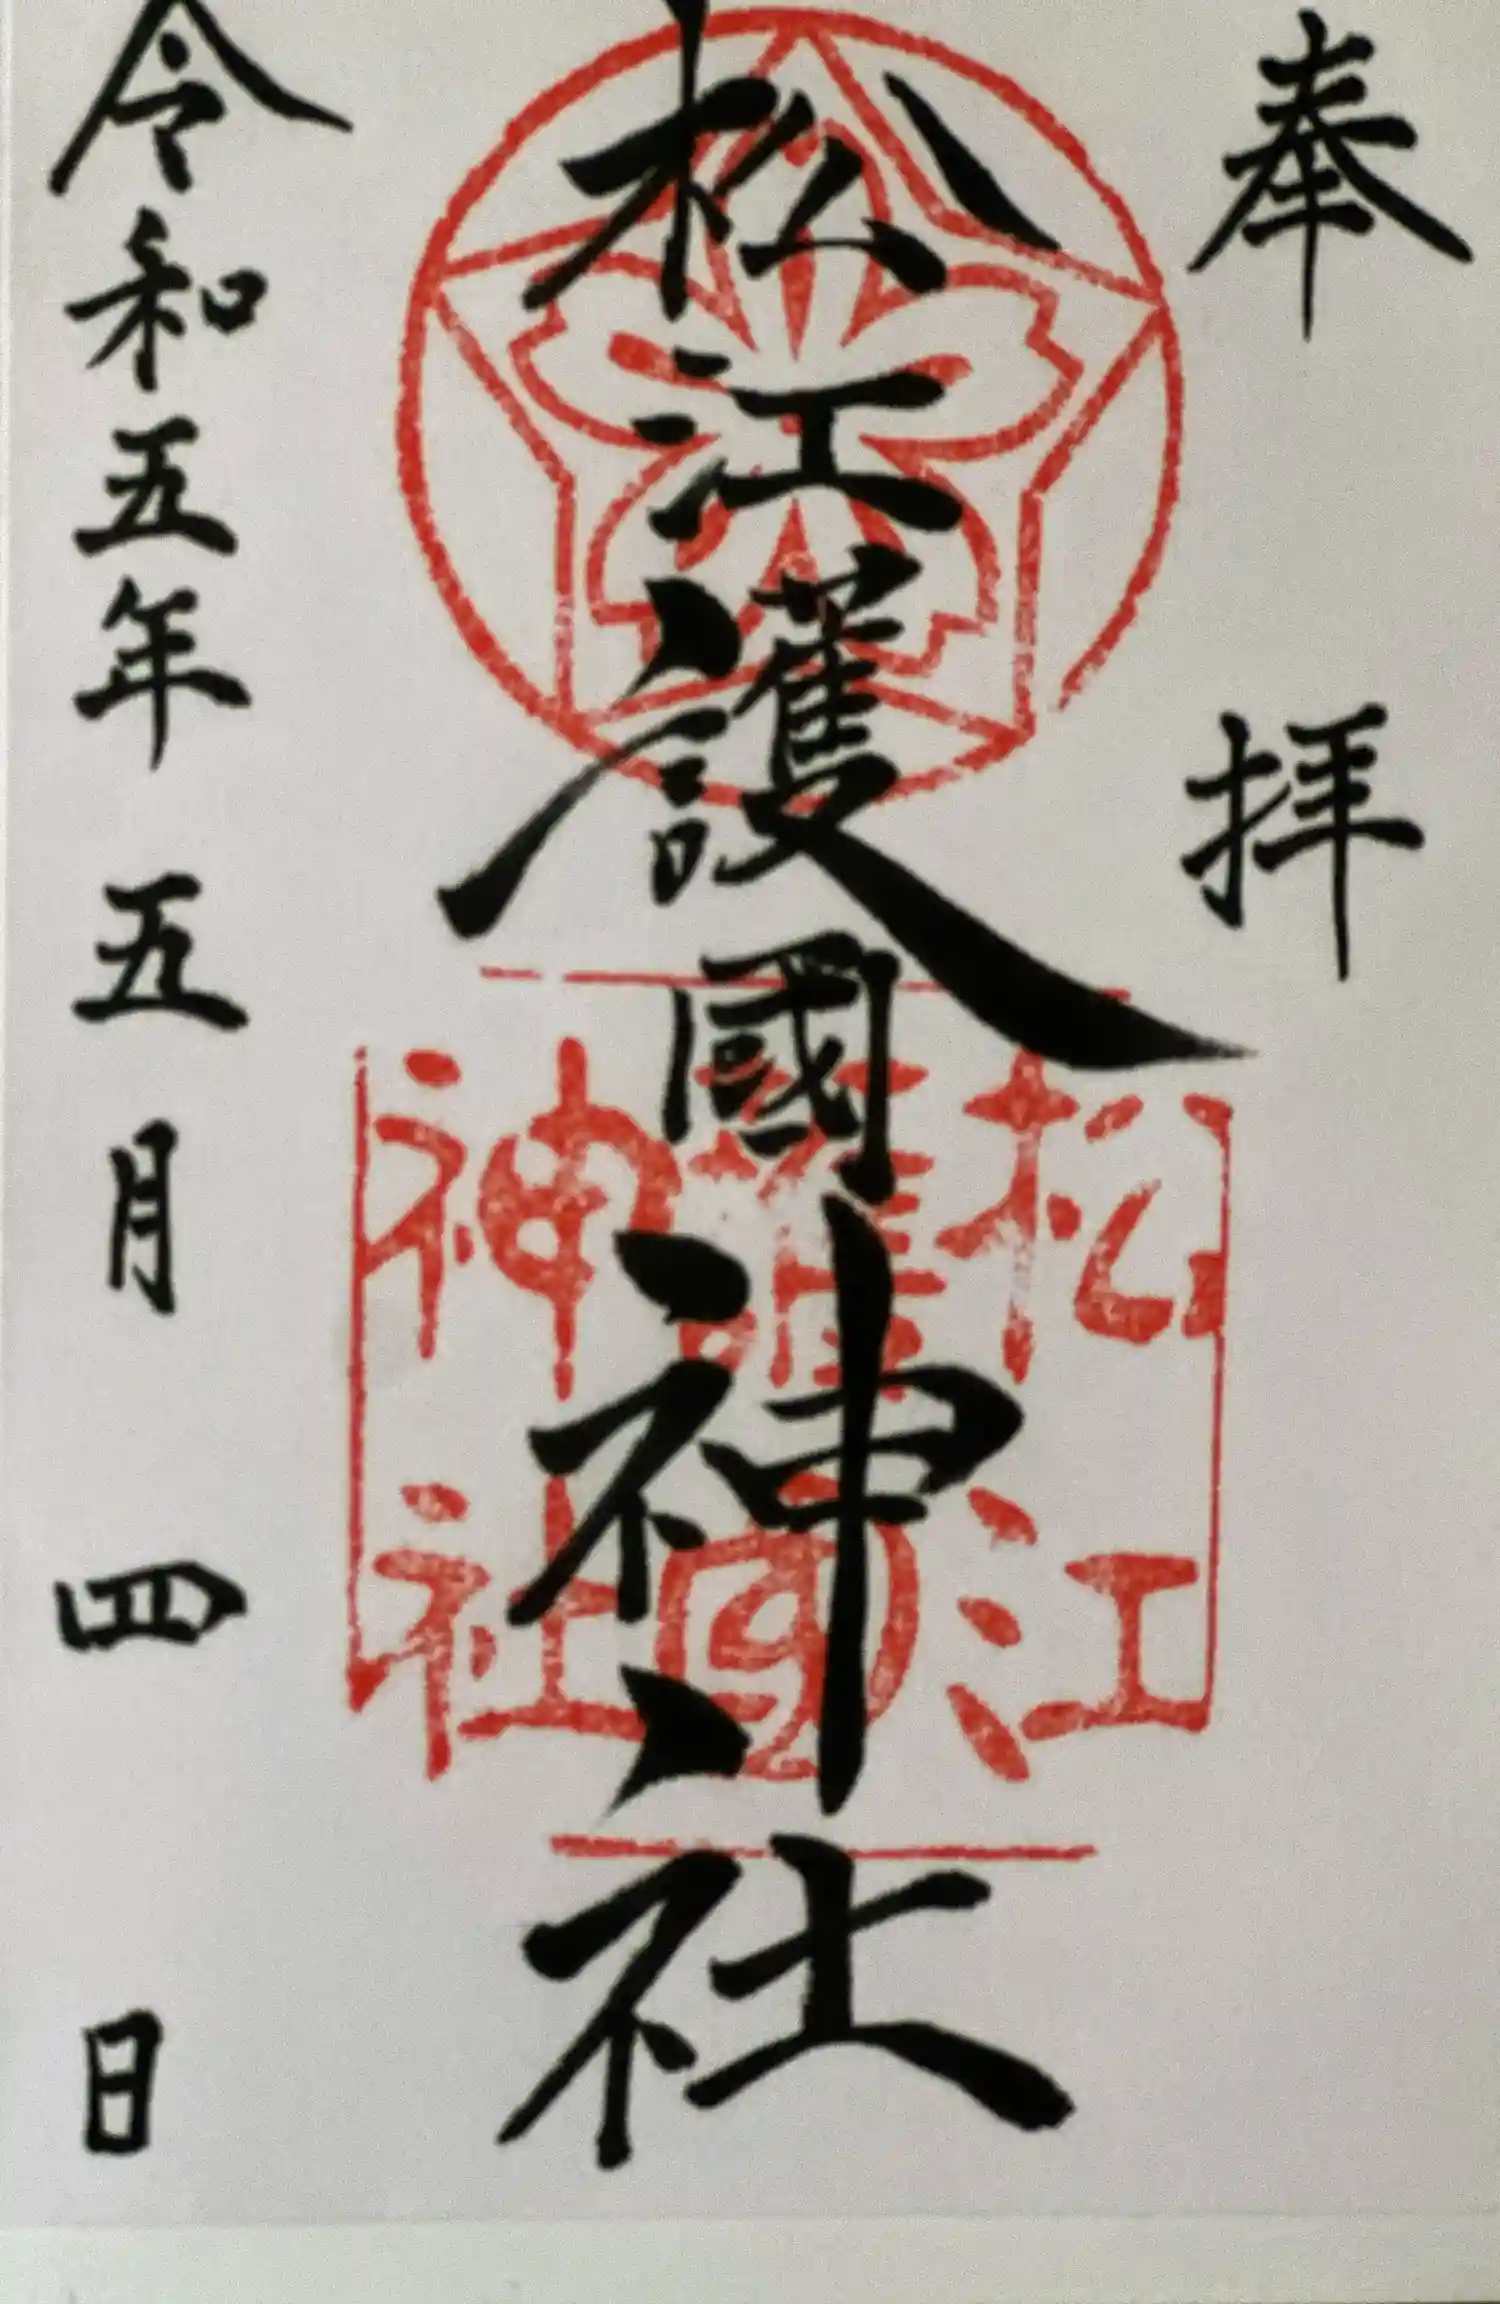 奉拝
松江護國神社
松江
護国
神社
令和五年五月四日